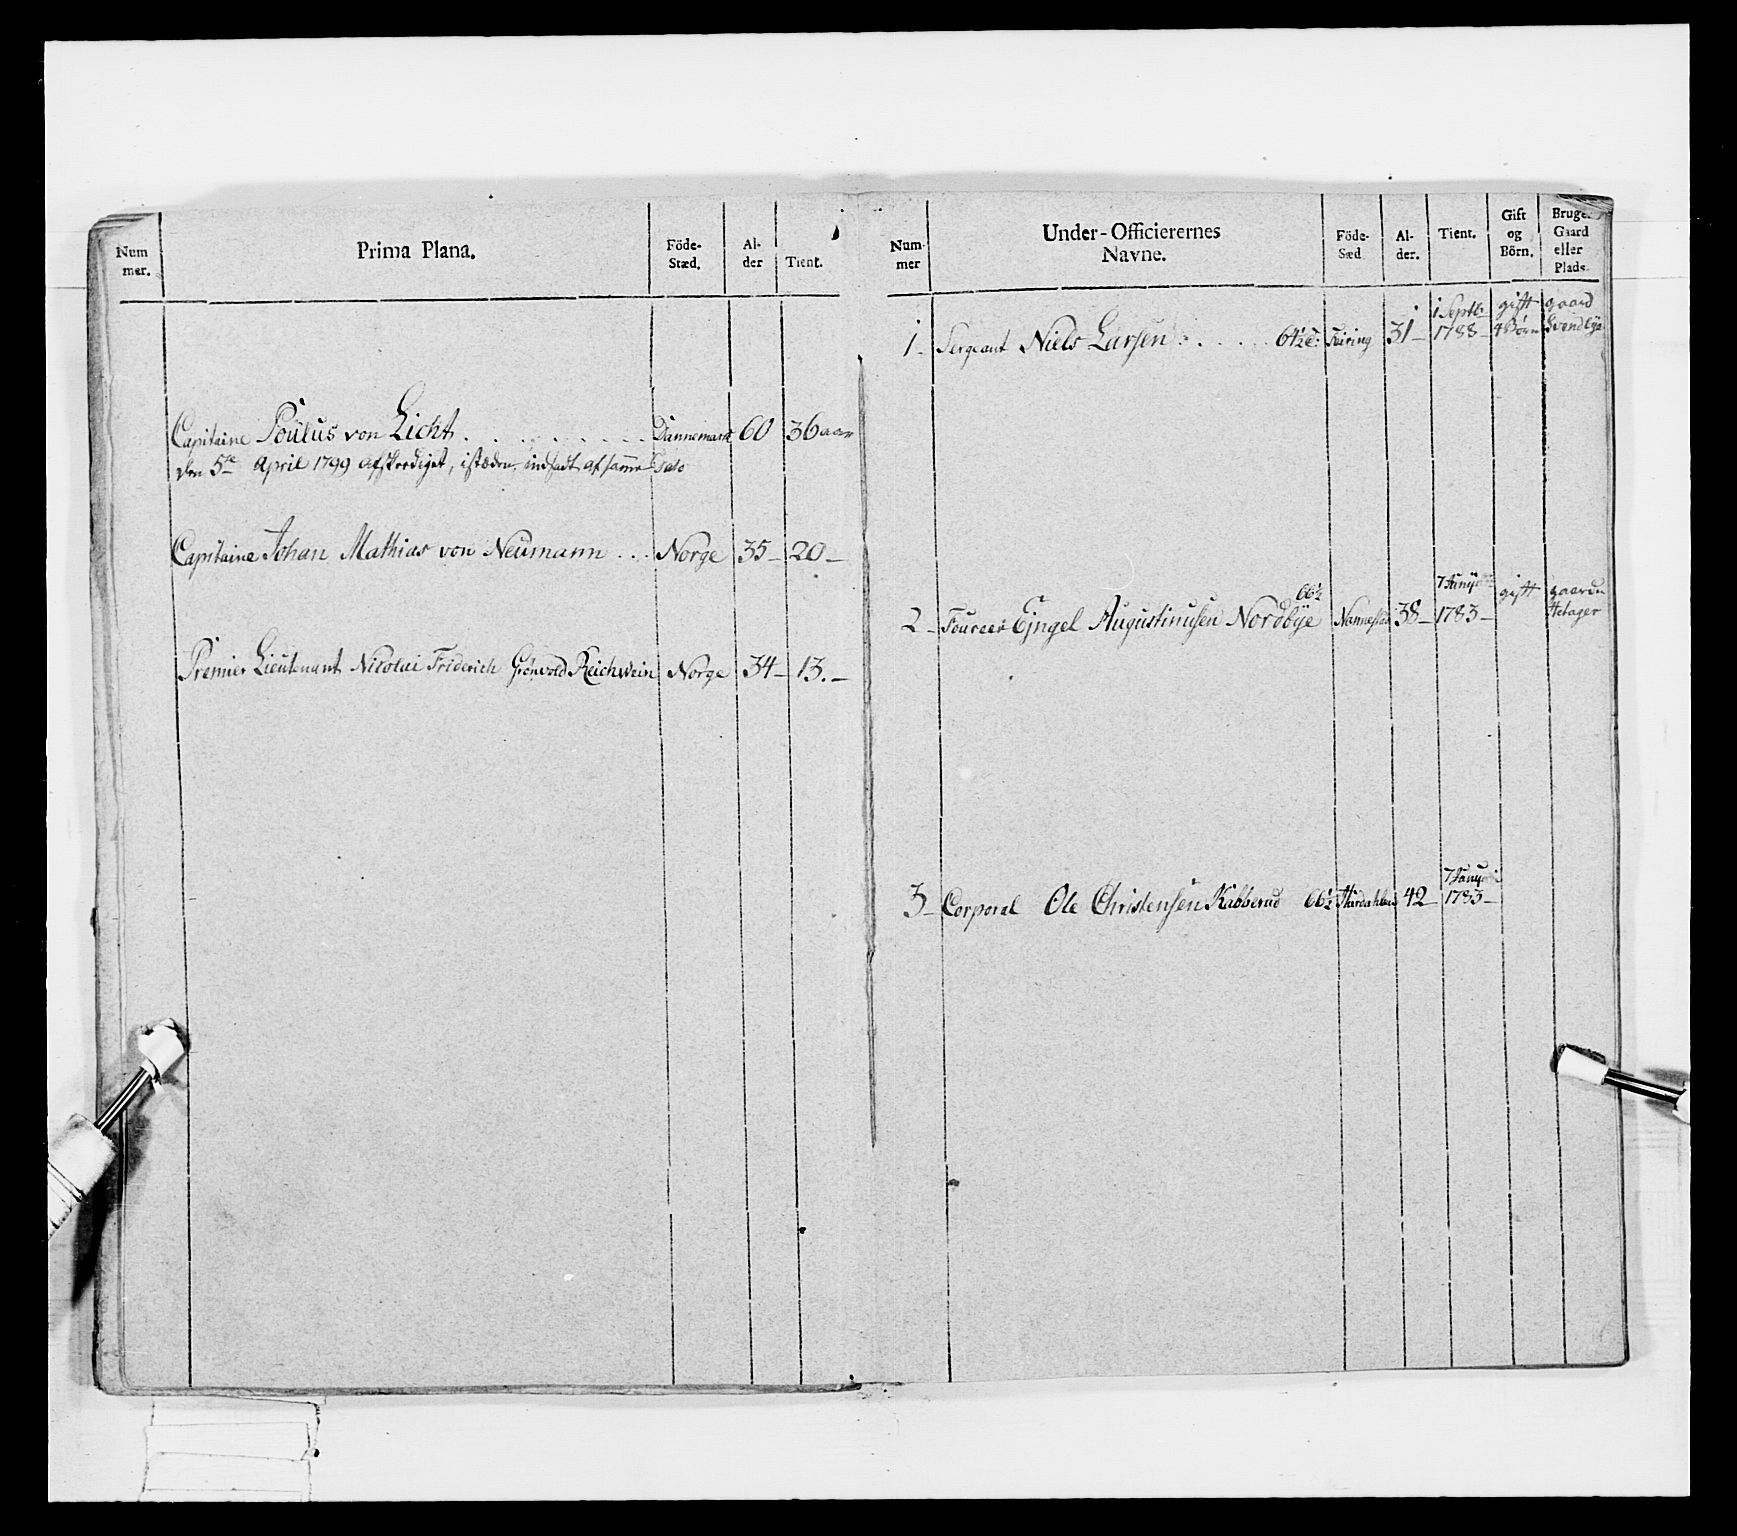 Num
mer.
Prima Plana.
Föde-
Stæd.
Al-
der
Tient.
Capitaine Poulus von Licht . . . . . . . . . Dannemark 60 36 aar
den 5te April 1799 afskeediget, istæden indsadt af samme Dato
Capitaine Johan Mathias von Neumann . . . Norge 35 – 20 –
Premier Lieutenant Nicolai Friderich Grönvold Reichwein Norge 34 – 13. –
Num-
mer
Under-Officierernes
Navne.
Föde-
Sæd
Al-
der.
Tient.
Gift
og
Börn.
Bruger
Gaard
eller
Plads.
1 Septb. gift gaard
1. Sergeant Niels Larsen . . . . . 64½ Feiring 31 – 1788 – 4 Børn
66½ 7 Juny gift
2 – Foureer Engel Augustinusen Nordbye Nannestad 38 – 1783 –
7 Juny
3 – Corporal Ole Christensen Kabberud 66½ Hurdahlen 42 – 1783 –